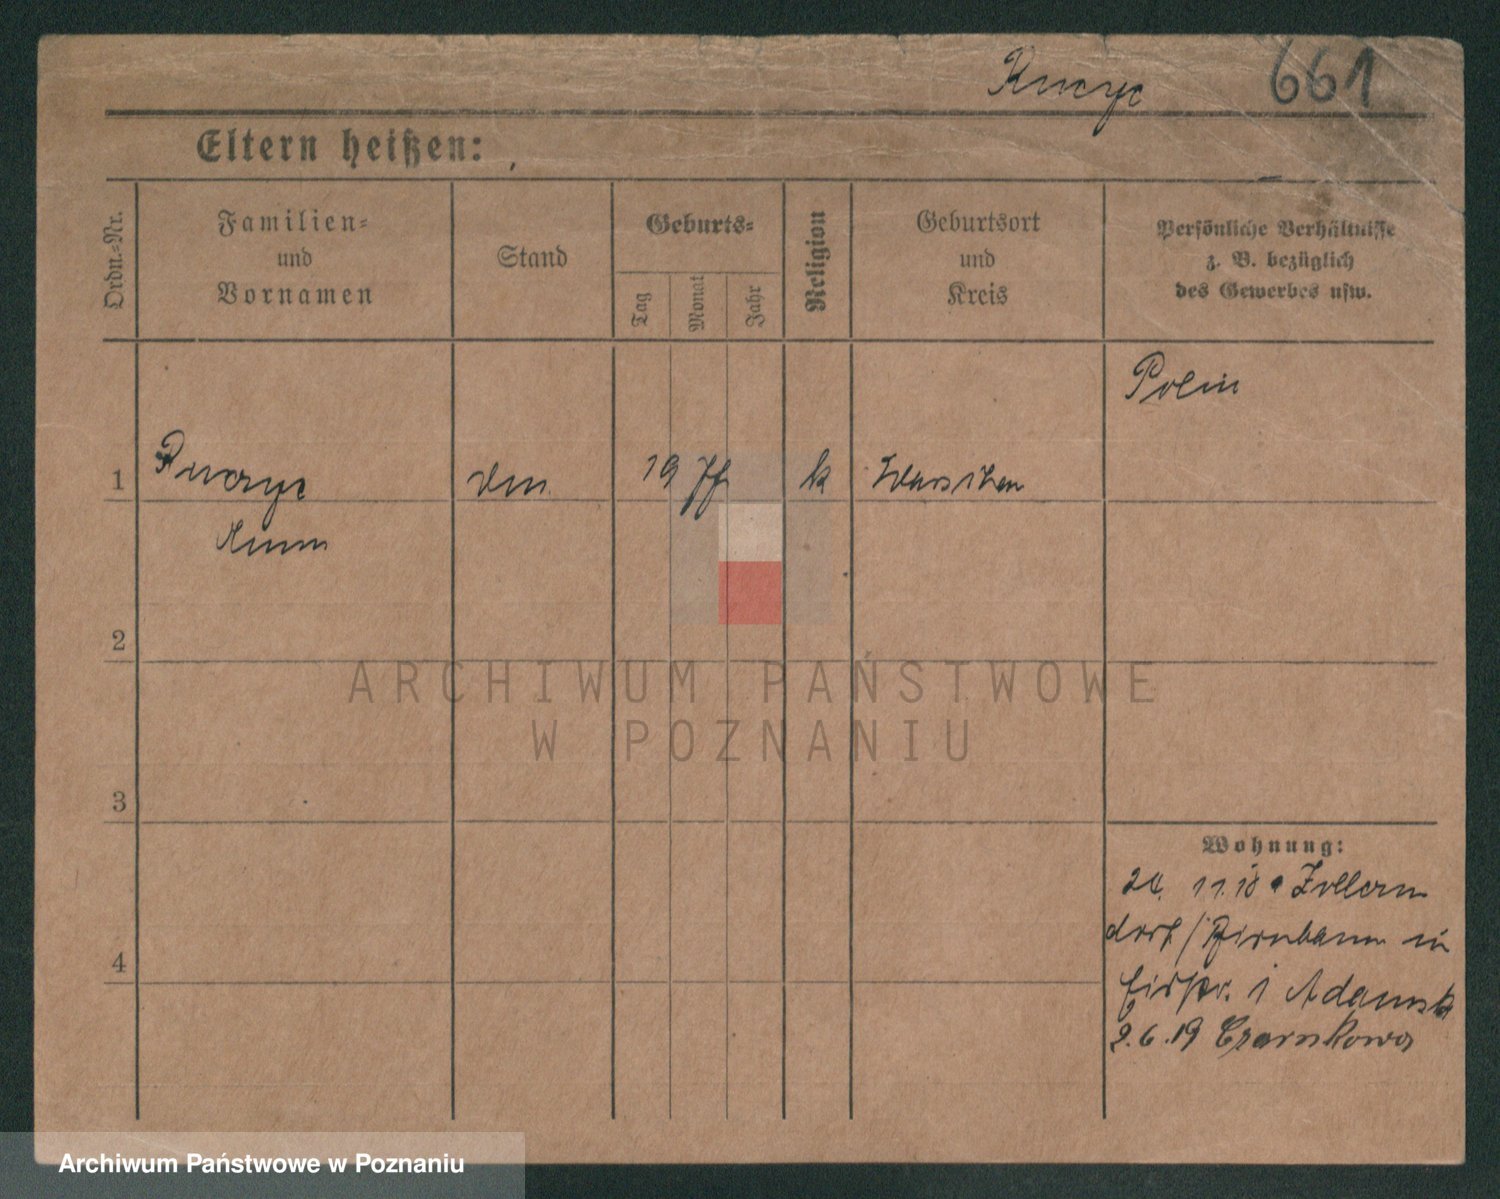 661
Eltern heißen:
Ordn.-Nr.
Familien-
und
Vornamen
Stand
Geburts-
Tag
Monat
Jahr
Religion
Geburtsort
und
Kreis
Persönliche Verhältnisse
z. B. bezüglich
des Gewerbes usw.
Polin
1
19
k
2
ARCHIWUM PAŃSTWOWE
W POZNANIU
3
Wohnung:
24. 11.18 Zollern
dorf / Birnbaum in
1 Adamsk
2.6.19 Czarnkowo
4
Archiwum Państwowe w Poznaniu